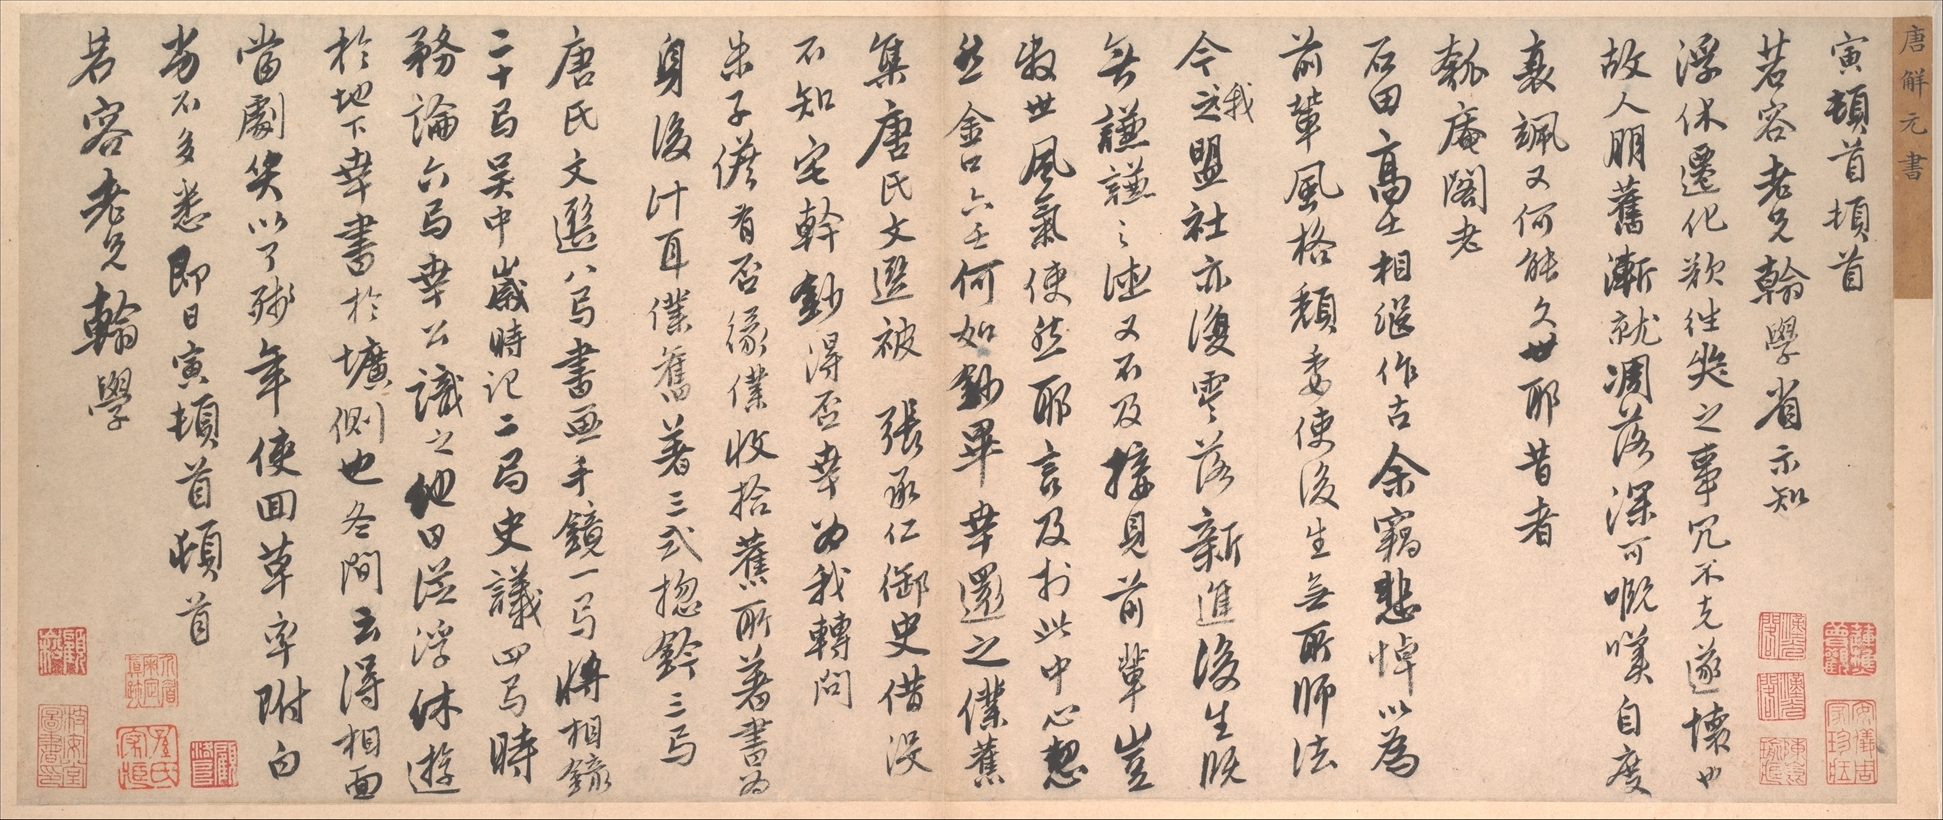 唐解元書
寅頓首頓首
若容老兄翰學省示知
浮休遷化歎徃之事冗不克遂懷也
故人朋舊漸就凋落深可慨嘆自度
衰颯又何能久世耶昔者
瓠庵閣老
石田高士相繼作古余竊悲悼以為
前輩風格頽委使後生無所師法
今之我盟社亦復零落新進後生既
無謙謙之德又不及接見前輩豈
世風氣使然耶言及於此中心
金口六壬何如鈔畢幸還之僕舊
集唐氏文選被 張承仁御史借沒
不知宅幹鈔得否幸為我轉問
朱子儋有否緣僕收拾舊所著書為
身後計耳僕舊著三式捴鈐三卷
唐氏文選八卷書畫手鏡一卷將相錄
二十卷吳中歲時記二卷史議四卷時
務論六卷幸公識之他日從浮休遊
於地下幸書於壙側也冬間去得相面
當劇笑以了殘年使回草率附白
多不多悉即日寅頓首頓首
若容老兄翰學